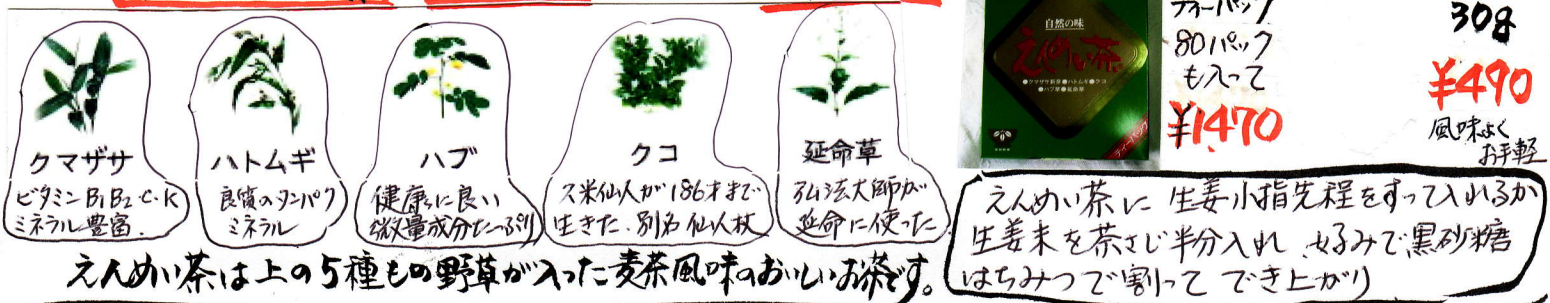 クマザサ
ビタミンB1B2C・K
ミネラル豊富.
ハトムギ
良質のタンパク
ミネラル
ハブ
健康に良い
微量成分たっぷり
クコ
久米仙人が186才まで
生きた.別名仙人杖
延命草
弘法大師が
延命に使った
えんめい茶は上の5種もの野草が入った麦茶風味のおいしいお茶です。
自然の味
えんめい茶
●クマザサ新芽●ハトムギ●クコ
●ハブ草●延命草
ティーパック
ティーパック
80パック
も入って
¥1470
30g
¥490
風味よく
お手軽
えんめい茶に生姜小指先程をすって入れるか
生姜末を茶さじ半分入れ、好みで黒砂糖
はちみつで割って でき上がり